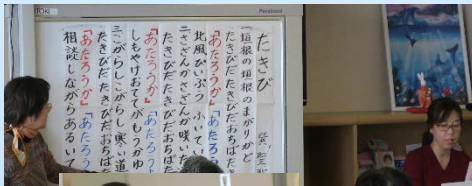 TOKI
Panaboard
たきび
一垣根の垣根のまがりかど
たきびだたきびだおちばたき
『あたろうか』『あたろ
北風ぴいぷう ふいて
二さざんかさざんか咲いた
たきびだたきびだおちばた
『あたろうか』『あたろう
しもやけおててがもうかゆ
三こがらしこがらし寒い道
たきびだたきびだおちば
『あたろうか』『あたろう
相談しながらあるいて